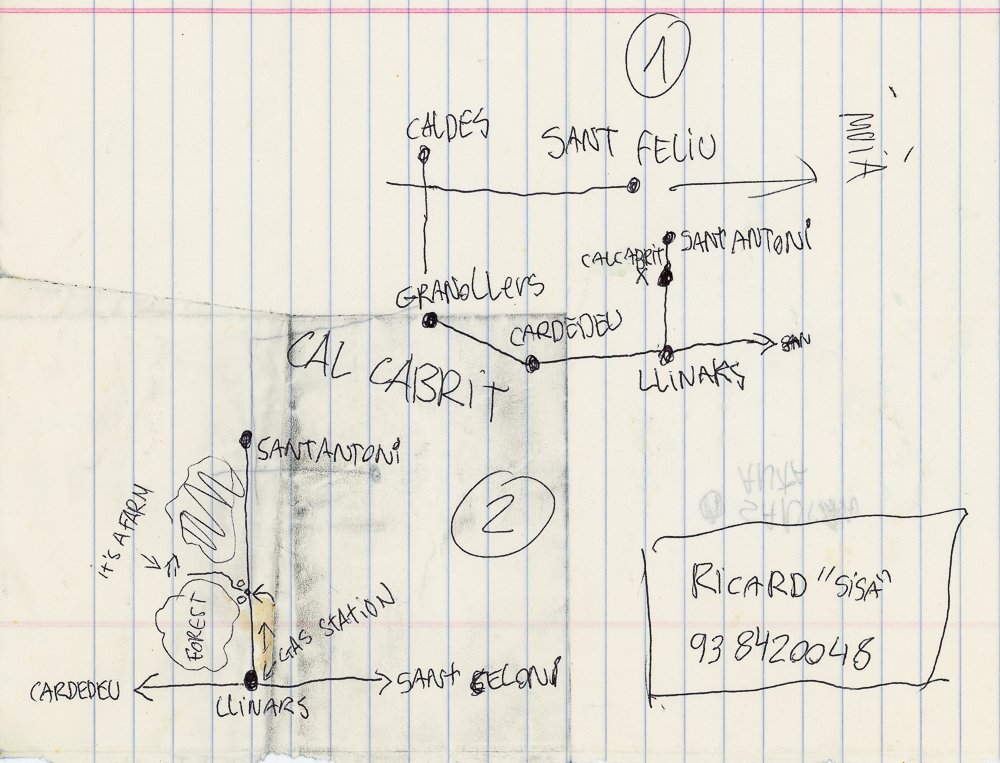 1
CALDES
SANT FELIU
MOIÀ
SANT ANTONI
CALCABRIT
X
GRANOLLERS
CARDEDEU
SAN
LLINARS
CAL CABRIT
SANT ANTONI
2
IT'S A FARM
FOREST
GAS STATION
CARDEDEU
SANT CELONI
LLINARS
RICARD "SISA"
93 8420048